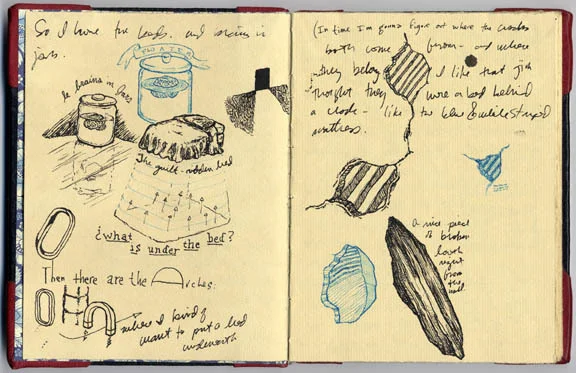 So I have the beds. and brains in
jars.
FLOATER
le brains in Jars
The guilt-ridden bed
¿what is under the bed?
Then there are the Arches.
where I kind of
want to put a bed
underneath
(In time I'm gonna figure out where the cracks
both come from - and where
they belong. I like that
thought they were a bed behind
a crack - like the blue & white striped
mattress.
a nice piece
of broken
right
from
the
wall.